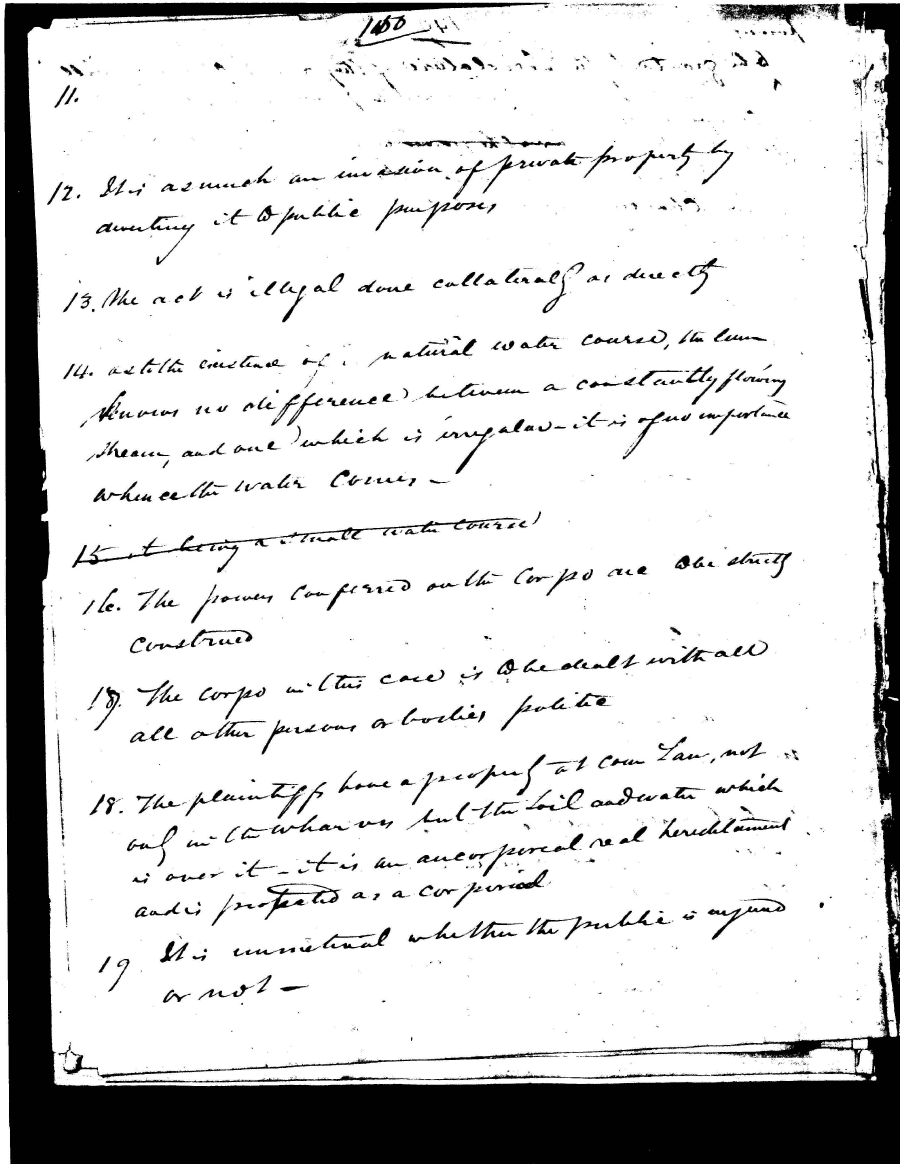 150
11.
12. It is as much an invasion of private property by
diverting it to public purposes
13. The act is illegal done collaterally as directly
14. as to the existence of a natural water course, the law
knows no difference between a constantly flowing
stream, and one which is irregular - it is of no importance
whence the water comes -
15. it being a small water course
16. The powers conferred on the Corpo are to be strictly
construed
17. The corpo in this case is to be dealt with all
all other persons or bodies politic
18. The plaintiffs have a property at com Law, not
only in the wharves but the soil and water which
is over it - it is an incorporeal real hereditament
and is protected as a corporeal
19 It is immaterial whether the public is injured
or not -